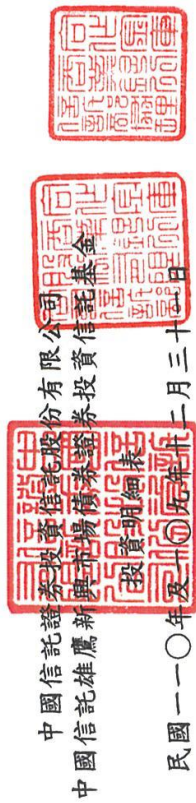 中國信託證券投資信託股份有限公司
中國信託雄鷹新興市場債券證券投資信託基金
投資明細表
民國一一〇年及一〇九年十二月三十一日